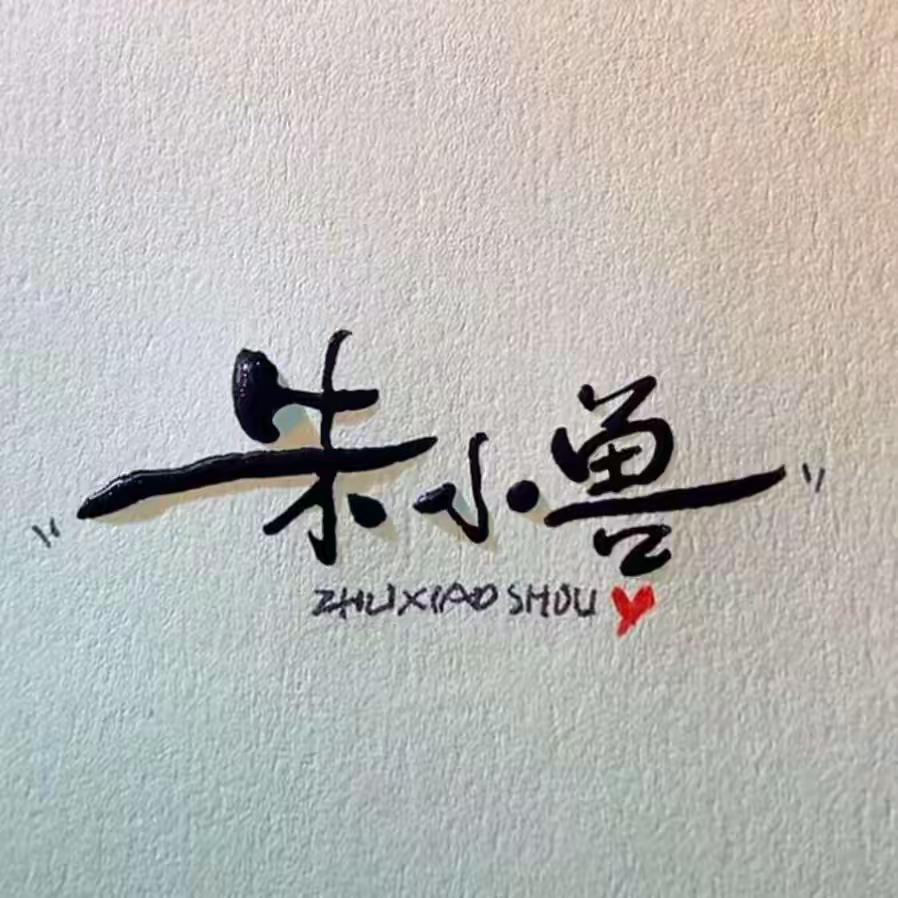 "朱小兽"
ZHUXIAOSHOU